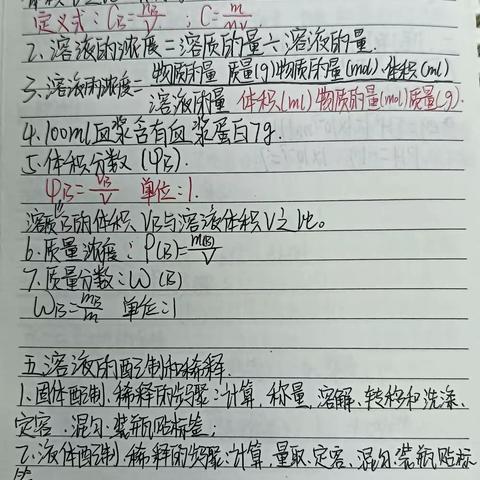 定义式：CB=nB/V ；C=m/MV.
2.溶液的浓度=溶质的量÷溶液的量.
3.溶液的浓度=物质的量 质量(g)物质的量(mol).体积(ml)
溶液的量 体积(ml)物质的量(mol)质量(g).
4.100ml血浆含有血浆蛋白7g.
5.体积分数(φB).
φB=VB/V 单位:1.
溶质B的体积VB与溶液体积V之比。
6.质量浓度：ρ(B)=m(B)/V
7.质量分数:ω(B)
ωB=mB/m 单位:1
五.溶液的配制和稀释.
1.固体配制.稀释的步骤:计算,称量,溶解、转移和洗涤、
定容.混匀.装瓶贴标签;
2.液体配制.稀释的步骤:计算,量取.定容、混匀.装瓶贴标